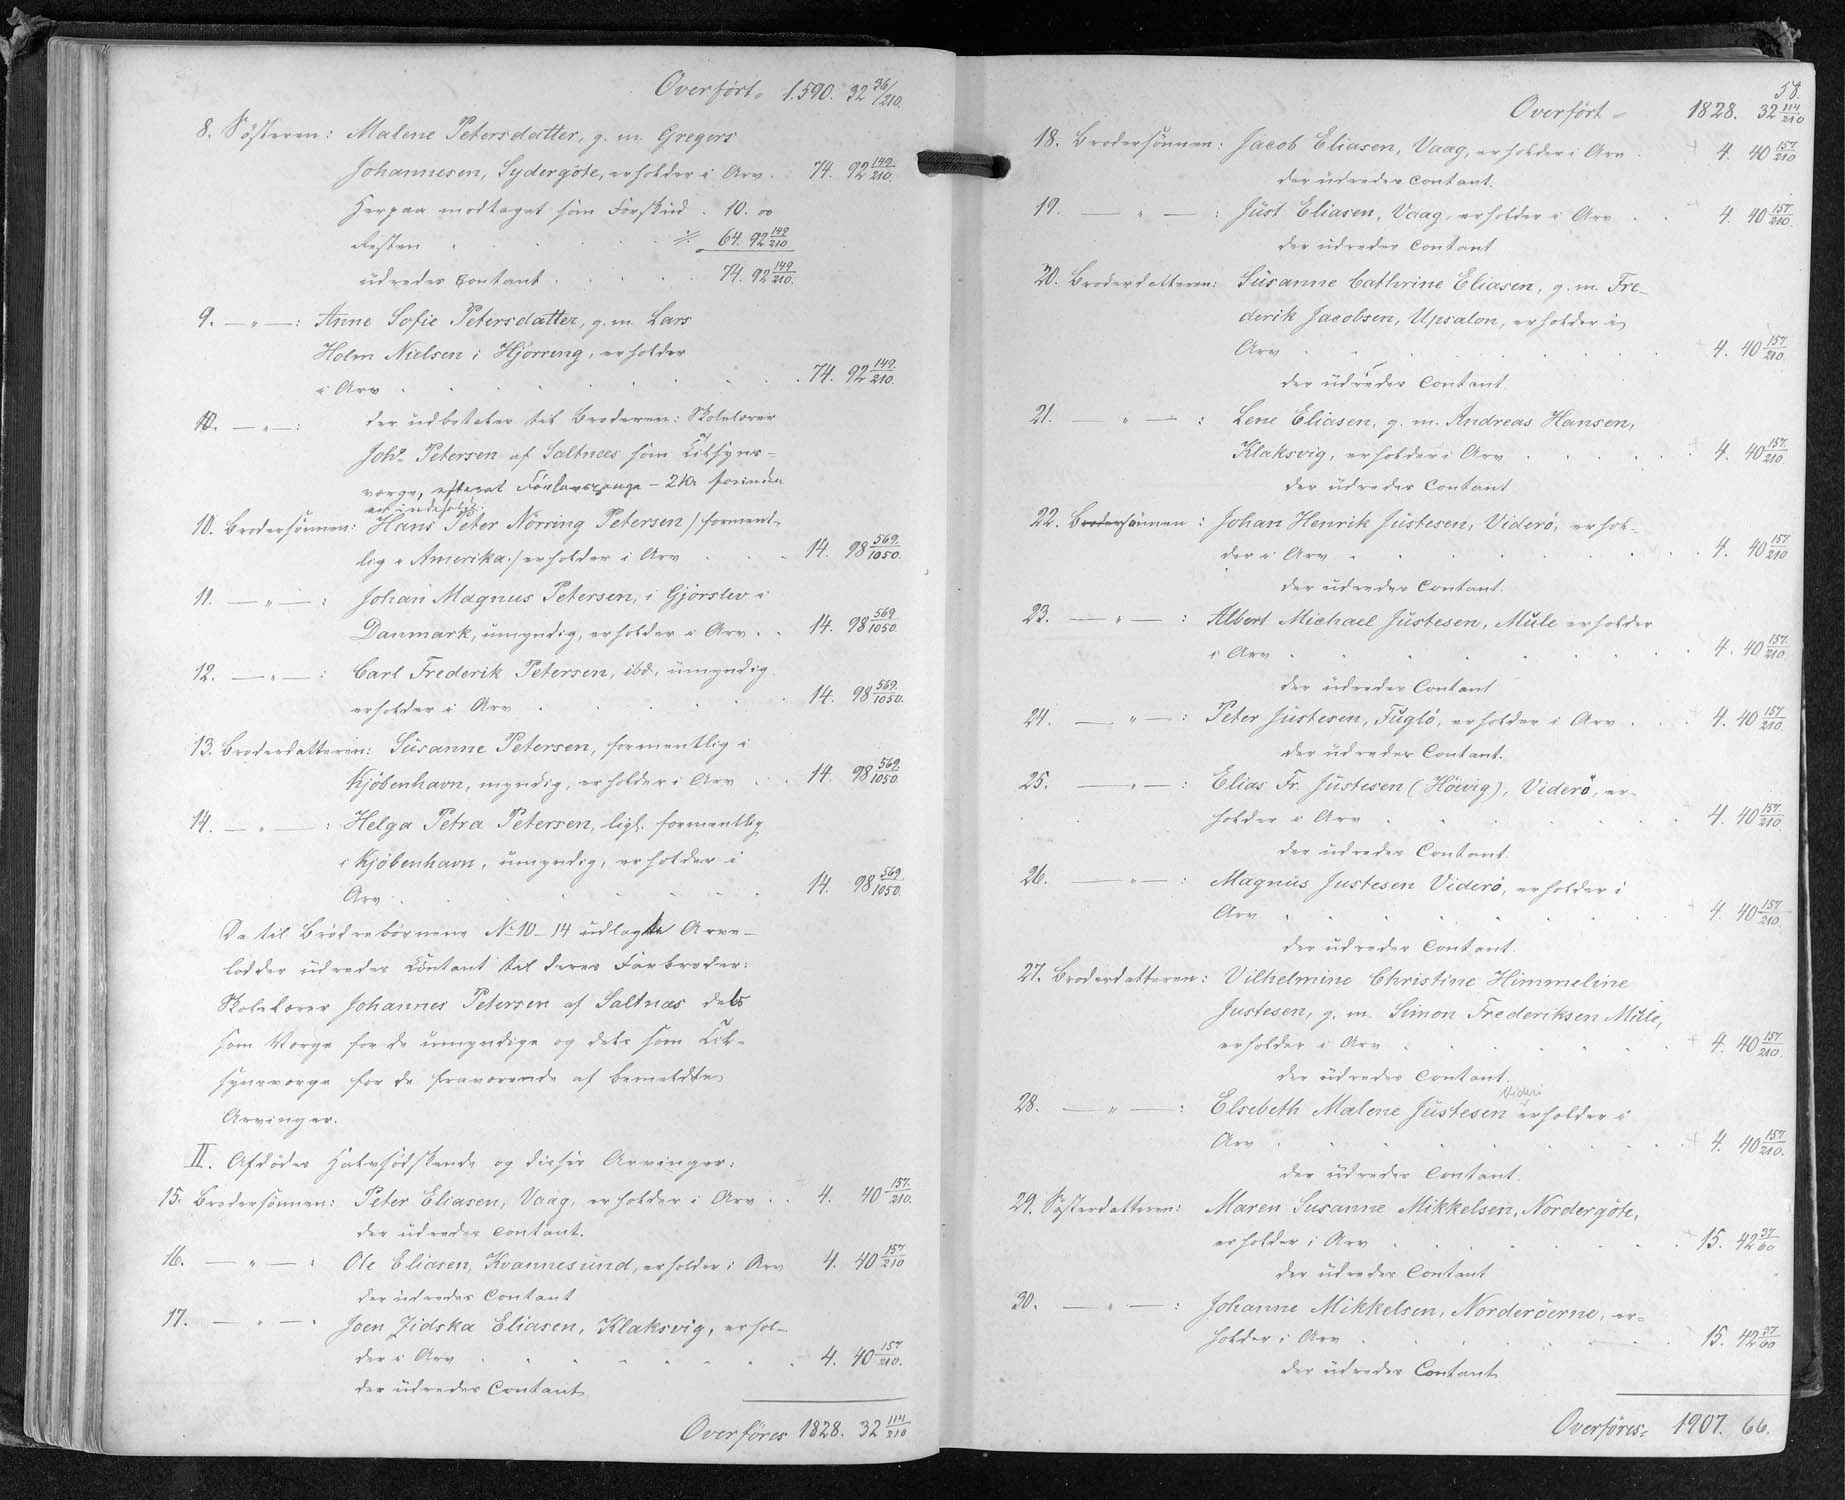 Overført " 1.590. 32 36/210.
8. Søsteren: Malene Petersdatter, g. m. Gregers
Johannesen, Sydergøte, erholder i Arv . 74. 92 149/210.
Herpaa modtaget som Forskud . 10. 00
Resten . . . . ./. 64. 92 149/210
udredes contant . . . . 74. 92 149/210.
9. — " — : Anne Sofie Petersdatter, g. m. Lars
Holm Nielsen i Hjørring, erholder
i Arv . . . . . . . . . . 74. 92 149/210.
10. — " — : der udbetales til Broderen: Skolelærer
Johs. Petersen af Saltnæs som Tilsyns-
værge, efterat — 2 Kr forinden
er indeholdt.
10. Brodersønnen: Hans Peter Nørring Petersen /: forment-
lig i Amerika :/ erholder i Arv . . . 14. 98 569/1050.
11. — " — : Johan Magnus Petersen, i Gjørslev i
Danmark, umyndig, erholder i Arv . . 14. 98 569/1050.
12. — " — : Carl Frederik Petersen, ibd., umyndig
erholder i Arv . . . . . . 14. 98 569/1050.
13. Broderdatteren: Susanne Petersen, formentlig i
Kjøbenhavn, myndig, erholder i Arv . . 14. 98 569/1050.
14. — " — : Helga Petra Petersen, ligl. formentlig
i Kjøbenhavn, umyndig, erholder i
Arv . . . . . . . . 14. 98 569/1050.
Da til Brødrebørnene No 10-14 udlagte Arve-
lodder udredes Contant til deres Farbroder:
Skolelærer Johannes Petersen af Saltnæs dels
som Værge for de umyndige og dels som Til-
synsværge for de fraværende af bemeldte
Arvinger.
II. Afdødes Halvsødskende og disses Arvinger:
15. Brodersønnen: Peter Eliasen, Vaag, erholder i Arv . . 4. 40 157/210.
der udredes contant.
16. — " — : Ole Eliasen, Kvannesund, erholder i Arv 4. 40 157/210
der udredes Contant
17. — " — : Joen Zidska Eliasen, Klaksvig, erhol-
der i Arv . . . . . . . . 4. 40 157/210.
der udredes Contant
Overføres 1828. 32 114/210
58.
Overført " 1828. 32 114/210
18. Brodersønnen: Jacob Eliasen, Vaag, erholder i Arv . 4. 40 157/210
der udredes contant.
19. — " — : Just Eliasen, Vaag, erholder i Arv . . 4. 40 157/210.
der udredes Contant
20. Broderdatteren: Susanne Cathrine Eliasen, g. m. Fre-
derik Jacobsen, Upsalon, erholder i
Arv . . . . . . . . 4. 40 157/210.
der udredes Contant.
21. — " — : Lene Eliasen, g. m. Andreas Hansen,
Klaksvig, erholder i Arv . . . . . 4. 40 157/210.
der udredes Contant
22. Brodersønnen : Johan Henrik Justesen, Viderø, erhol-
der i Arv . . . . . . . . . 4. 40 157/210
der udredes Contant.
23. — " — : Albert Michael Justesen, Mule erholder
i Arv . . . . . . . . . 4. 40 157/210
der udredes Contant
24. — " — : Peter Justesen, Fuglø, erholder i Arv . . . 4. 40 157/210
der udredes Contant.
25. — " — : Elias Fr. Justesen (Höivig), Viderø, er-
holder i Arv . . . . . . . 4. 40 157/210
der udredes Contant.
26. — " — : Magnus Justesen Viderø, erholder i
Arv . . . . . . . . 4. 40 157/210.
der udredes Contant.
27. Broderdatteren: Vilhelmine Christine Himmeline
Justesen, g. m. Simon Frederiksen Mule,
erholder i Arv . . . . . . . 4. 40 157/210.
der udredes Contant.
Viderø
28. — " — : Elsebeth Malene Justesen erholder i
Arv . . . . . . . . . 4. 40 157/210.
der udredes Contant.
29. Søsterdatteren: Maren Susanne Mikkelsen, Nordergøte,
erholder i Arv . . . . . . . 15. 42 37/60
der udredes Contant
30. — " — : Johanne Mikkelsen, Norderøerne, er-
holder i Arv . . . . . . 15. 42 37/60
der udredes Contant
Overføres: 1907. 66.